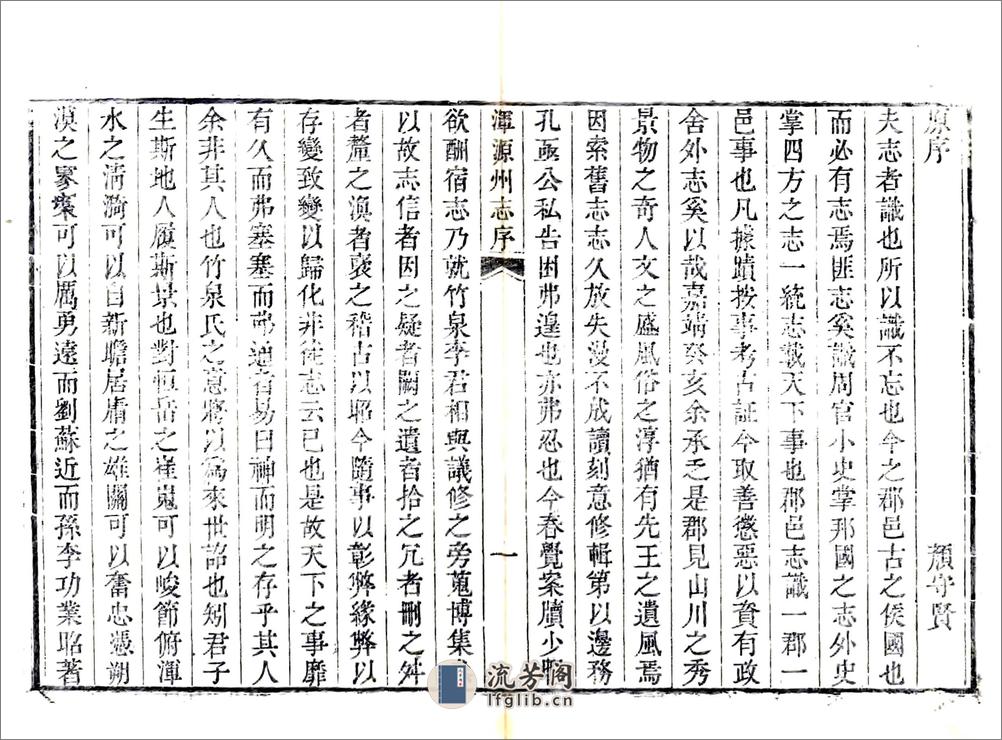 原序　顏守賢
夫志者識也所以識不忘也今之郡邑古之侯國也
而必有志焉匪志奚識周官小史掌邦國之志外史
掌四方之志一統志識天下事也郡邑志識一郡一
邑事也凡據蹟按事考古証今取善懲惡以資有政
舍外志奚以哉嘉靖癸亥余承乏是郡見山川之秀
景物之奇人文之盛風俗之淳猶有先王之遺風焉
因索舊志志久放失漫不成讀刻意修輯第以邊務
孔亟公私告困弗遑也亦弗忍也今春覺案牘少暇
渾源州志序　一
欲酬宿志乃就竹泉李君相與議修之旁蒐博集
以故志信者因之疑者闕之遺者拾之冗者刪之舛
者釐之渙者裒之稽古以昭今隨事以彰弊緣弊以
存變致變以歸化非徒志云已也是故天下之事靡
有久而弗塞塞而弗通者易曰神而明之存乎其人
余非其人也竹泉氏之意將以為來世詔也矧君子
生斯地人履斯景也對恒岳之崔嵬可以峻節俯渾
水之淸漪可以自新瞻居庸之雄關可以奮忠憑朔
漠之寥可以厲勇遠而劉蘇近而孫李功業昭著
流芳阁
lfglib.cn